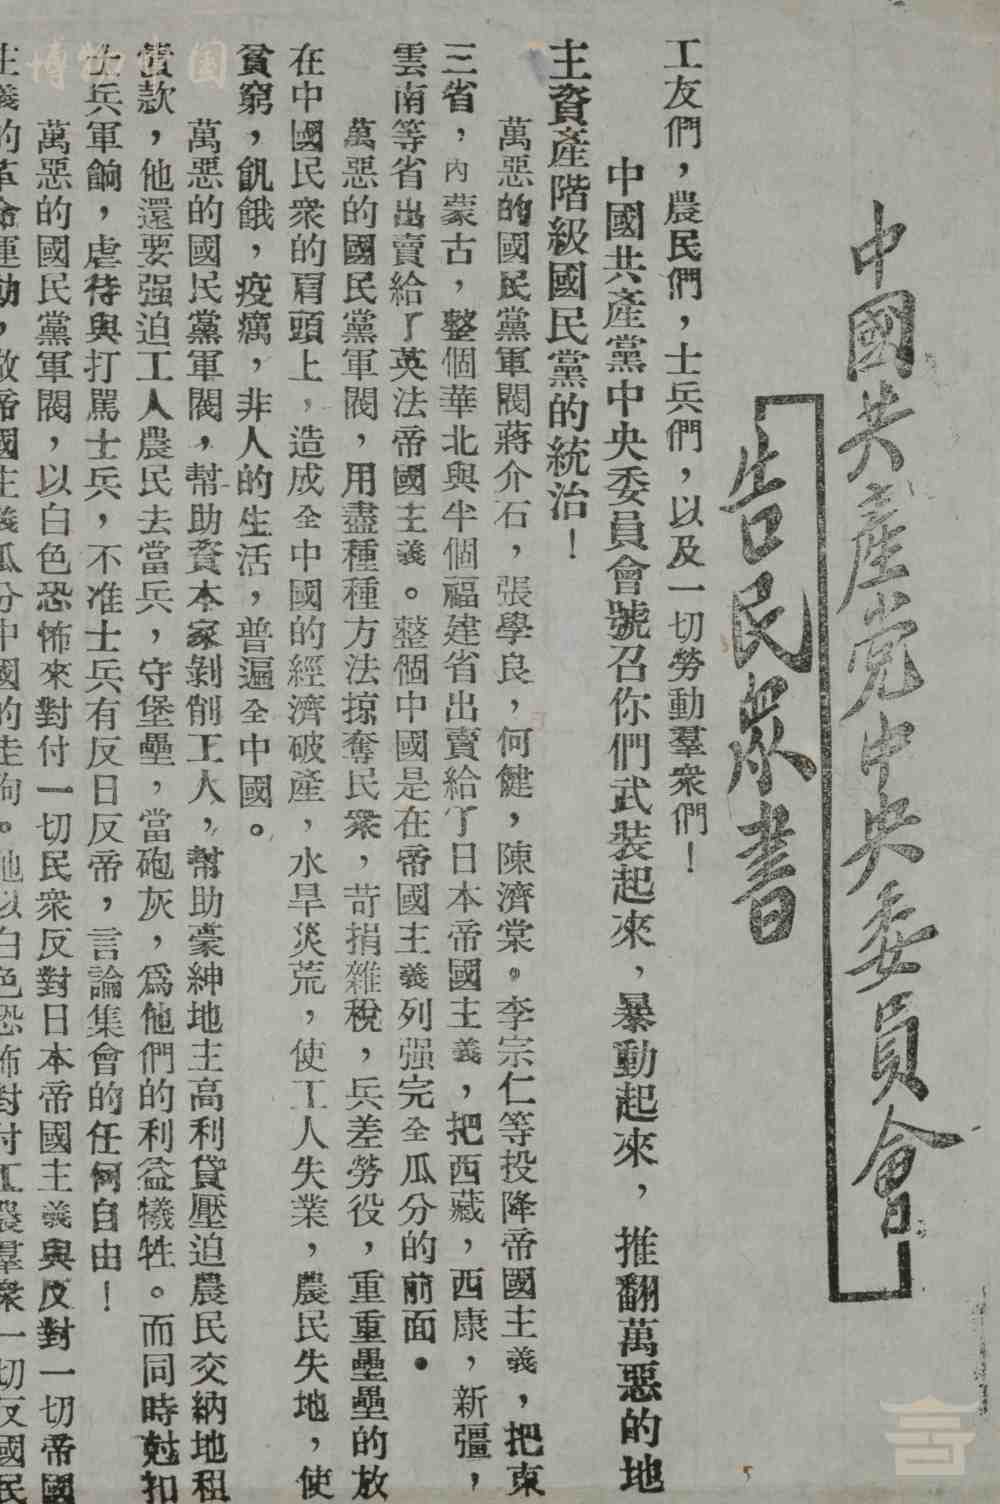 中國共產党中央委員會
告民眾書
工友們，農民們，士兵們，以及一切勞動羣衆們！
中國共產黨中央委員會號召你們武裝起來，暴動起來，推翻萬惡的地
主資產階級國民黨的統治！
萬惡的國民黨軍閥蔣介石，張學良，何健，陳濟棠。李宗仁等投降帝國主義，把東
三省，內蒙古，整個華北與半個福建省出賣給了日本帝國主義，把西藏，西康，新疆，
雲南等省出賣給了英法帝國主義。整個中國是在帝國主義列强完全瓜分的前面。
萬惡的國民黨軍閥，用盡種種方法掠奪民衆，苛捐雜稅，兵差勞役，重重壘壘的放
在中國民衆的肩頭上，造成全中國的經濟破產，水旱災荒，使工人失業，農民失地，使
貧窮，飢餓，疫癘，非人的生活，普遍全中國。
萬惡的國民黨軍閥，幫助資本家剝削工人，幫助豪紳地主高利貸壓迫農民交納地租
債款，他還要强迫工人農民去當兵，守堡壘，當砲灰，爲他們的利益犧牲。而同時尅扣
士兵軍餉，虐待與打駡士兵，不准士兵有反日反帝，言論集會的任何自由！
萬惡的國民黨軍閥，以白色恐怖來對付一切民衆反對日本帝國主義與反對一切帝國
主義的革命運動，做帝國主義瓜分中國的走狗。他以白色恐怖對付工農羣衆一切反國民
博物中国